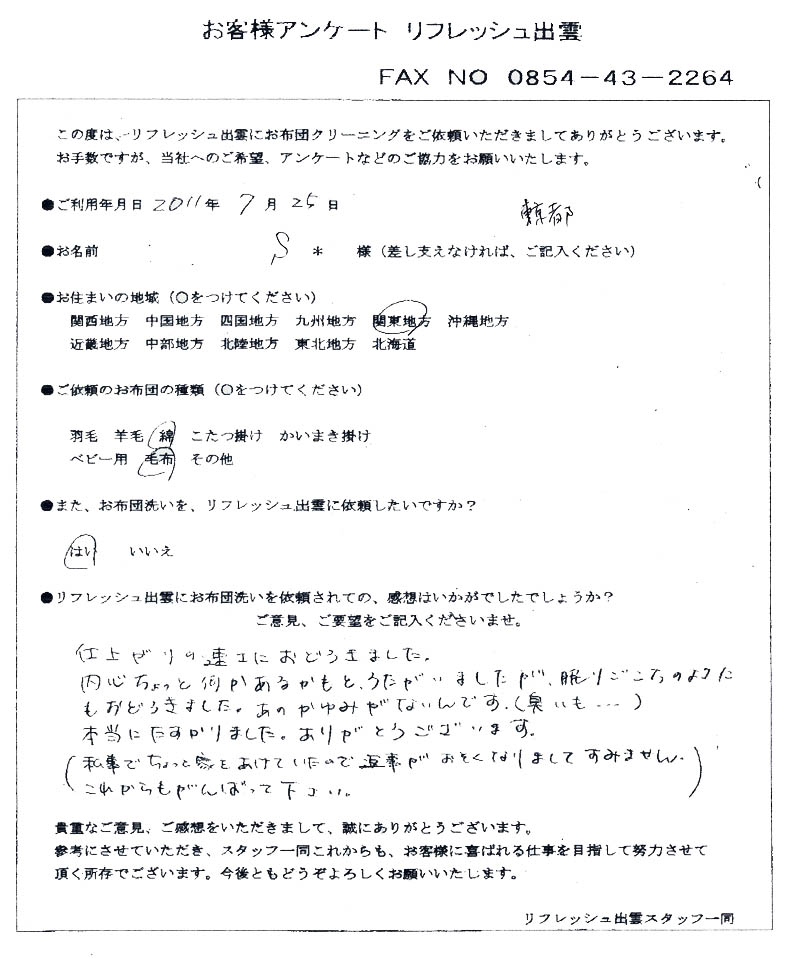 お客様アンケート リフレッシュ出雲
FAX NO 0854-43-2264
この度は、リフレッシュ出雲にお布団クリーニングをご依頼いただきましてありがとうございます。
お手数ですが、当社へのご希望、アンケートなどのご協力をお願いいたします。
●ご利用年月日 2011年 7月 25日
東京都
●お名前 S * 様（差し支えなければ、ご記入ください）
●お住まいの地域（○をつけてください）
関西地方 中国地方 四国地方 九州地方 関東地方 沖縄地方
近畿地方 中部地方 北陸地方 東北地方 北海道
●ご依頼のお布団の種類（○をつけてください）
羽毛 羊毛 綿 こたつ掛け かいまき掛け
ベビー用 毛布 その他
●また、お布団洗いを、リフレッシュ出雲に依頼したいですか？
はい いいえ
●リフレッシュ出雲にお布団洗いを依頼されての、感想はいかがでしたでしょうか？
ご意見、ご要望をご記入くださいませ。
仕上がりの速さにおどろきました。
内心ちょっと何かあるかもと、うたがいましたが、眠りごこちのよさに
もおどろきました。あのかゆみがないんです。（臭いも…）
本当にたすかりました。ありがとうございます。
（私事でちょっと家をあけていたので返事がおそくなりましてすみません。
これからもがんばって下さい。）
貴重なご意見、ご感想をいただきまして、誠にありがとうございます。
参考にさせていただき、スタッフ一同これからも、お客様に喜ばれる仕事を目指して努力させて
頂く所存でございます。今後ともどうぞよろしくお願いいたします。
リフレッシュ出雲スタッフ一同